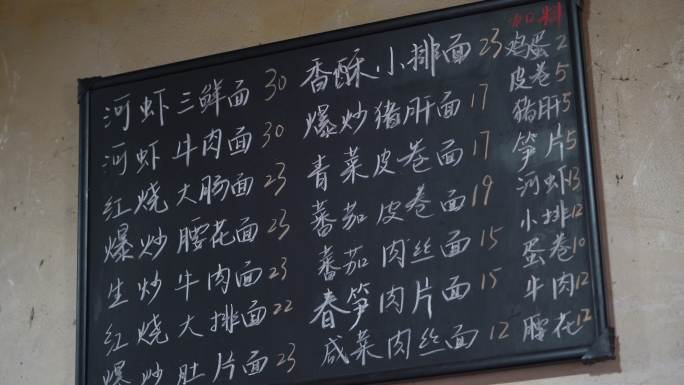 河虾三鲜面 30
河虾牛肉面 30
红烧大肠面 23
爆炒腰花面 23
生炒牛肉面 23
红烧大排面 22
爆炒肚片面 23
香酥小排面 23
爆炒猪肝面 17
青菜皮卷面 17
蕃茄皮卷面 19
蕃茄肉丝面 15
春笋肉片面 15
咸菜肉丝面 12
加料
鸡蛋 2
皮卷 5
猪肝 5
笋片 5
河虾 13
小排 12
蛋卷 10
牛肉 12
腰花 12